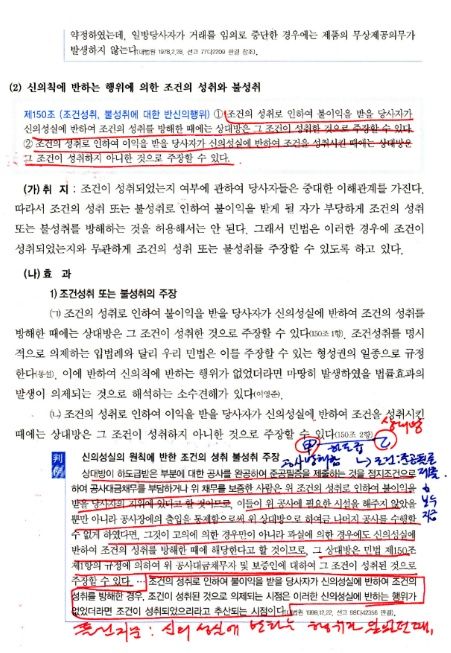 약정하였는데, 일방당사자가 거래를 임의로 중단한 경우에는 제품의 무상제공의무가
발생하지 않는다(대법원 1978.2.28. 선고 77다2209 판결 참조).
(2) 신의칙에 반하는 행위에 의한 조건의 성취와 불성취
제150조 (조건성취, 불성취에 대한 반신의행위) ① 조건의 성취로 인하여 불이익을 받을 당사자가
신의성실에 반하여 조건의 성취를 방해한 때에는 상대방은 그 조건이 성취한 것으로 주장할 수 있다.
② 조건의 성취로 인하여 이익을 받을 당사자가 신의성실에 반하여 조건을 성취시킨 때에는 상대방은
그 조건이 성취하지 아니한 것으로 주장할 수 있다.
(가) 취 지 : 조건이 성취되었는지 여부에 관하여 당사자들은 중대한 이해관계를 가진다.
따라서 조건의 성취 또는 불성취로 인하여 불이익을 받게 될 자가 부당하게 조건의 성취
또는 불성취를 방해하는 것을 허용해서는 안 된다. 그래서 민법은 이러한 경우에 조건이
성취되었는지와 무관하게 조건의 성취 또는 불성취를 주장할 수 있도록 하고 있다.
(나) 효 과
1) 조건성취 또는 불성취의 주장
㈀ 조건의 성취로 인하여 불이익을 받을 당사자가 신의성실에 반하여 조건의 성취를
방해한 때에는 상대방은 그 조건이 성취한 것으로 주장할 수 있다(150조 1항). 조건성취를 명시
적으로 의제하는 입법례와 달리 우리 민법은 이를 주장할 수 있는 형성권의 일종으로 규정
한다(통설). 이에 반하여 신의칙에 반하는 행위가 없었더라면 마땅히 발생하였을 법률효과의
발생이 의제되는 것으로 해석하는 소수견해가 있다(이영준).
㈁ 조건의 성취로 인하여 이익을 받을 당사자가 신의성실에 반하여 조건을 성취시킨
때에는 상대방은 그 조건이 성취하지 아니한 것으로 주장할 수 있다(150조 2항).
상대방
甲 하도급 乙
판례 신의성실의 원칙에 반한 조건의 성취 불성취 주장
공사방해 조건:준공필증 제출
상대방이 하도급받은 부분에 대한 공사를 완공하여 준공필증을 제출하는 것을 정지조건으로
하여 공사대금채무를 부담하거나 위 채무를 보증한 사람은 위 조건의 성취로 인하여 불이익을
받을 당사자의 지위에 있다고 할 것이므로, 이들이 위 공사에 필요한 시설을 해주지 않았을
뿐만 아니라 공사장에의 출입을 통제함으로써 위 상대방으로 하여금 나머지 공사를 수행할
수 없게 하였다면, 그것이 고의에 의한 경우만이 아니라 과실에 의한 경우에도 신의성실에
반하여 조건의 성취를 방해한 때에 해당한다고 할 것이므로, 그 상대방은 민법 제150조
제1항의 규정에 의하여 위 공사대금채무자 및 보증인에 대하여 그 조건이 성취된 것으로
주장할 수 있다. … 조건의 성취로 인하여 불이익을 받을 당사자가 신의성실에 반하여 조건의
성취를 방해한 경우, 조건이 성취된 것으로 의제되는 시점은 이러한 신의성실에 반하는 행위가
없었더라면 조건이 성취되었으리라고 추산되는 시점이다(대법원 1998.12.22. 선고 98다42356 판결).
신의성실에 반하는 행위가 없었던때,